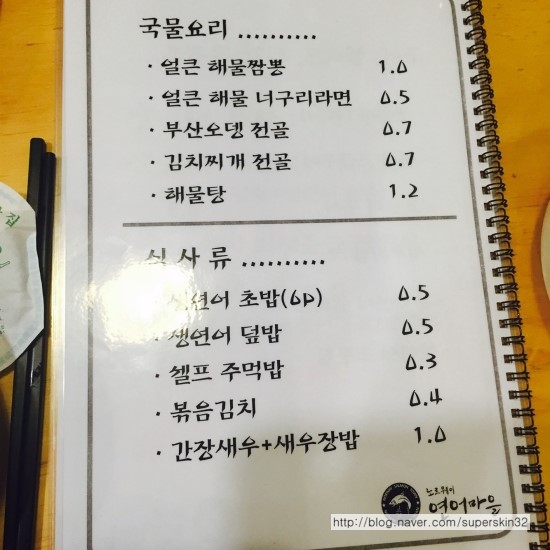 국물요리 ..........
· 얼큰 해물짬뽕 1.0
· 얼큰 해물 너구리라면 0.5
· 부산오뎅 전골 0.7
· 김치찌개 전골 0.7
· 해물탕 1.2
식사류 ..........
· 생연어 초밥(6p) 0.5
· 생연어 덮밥 0.5
· 셀프 주먹밥 0.3
· 볶음김치 0.4
· 간장새우+새우장밥 1.0
노르웨이
연어마을
http://blog.naver.com/superskin32